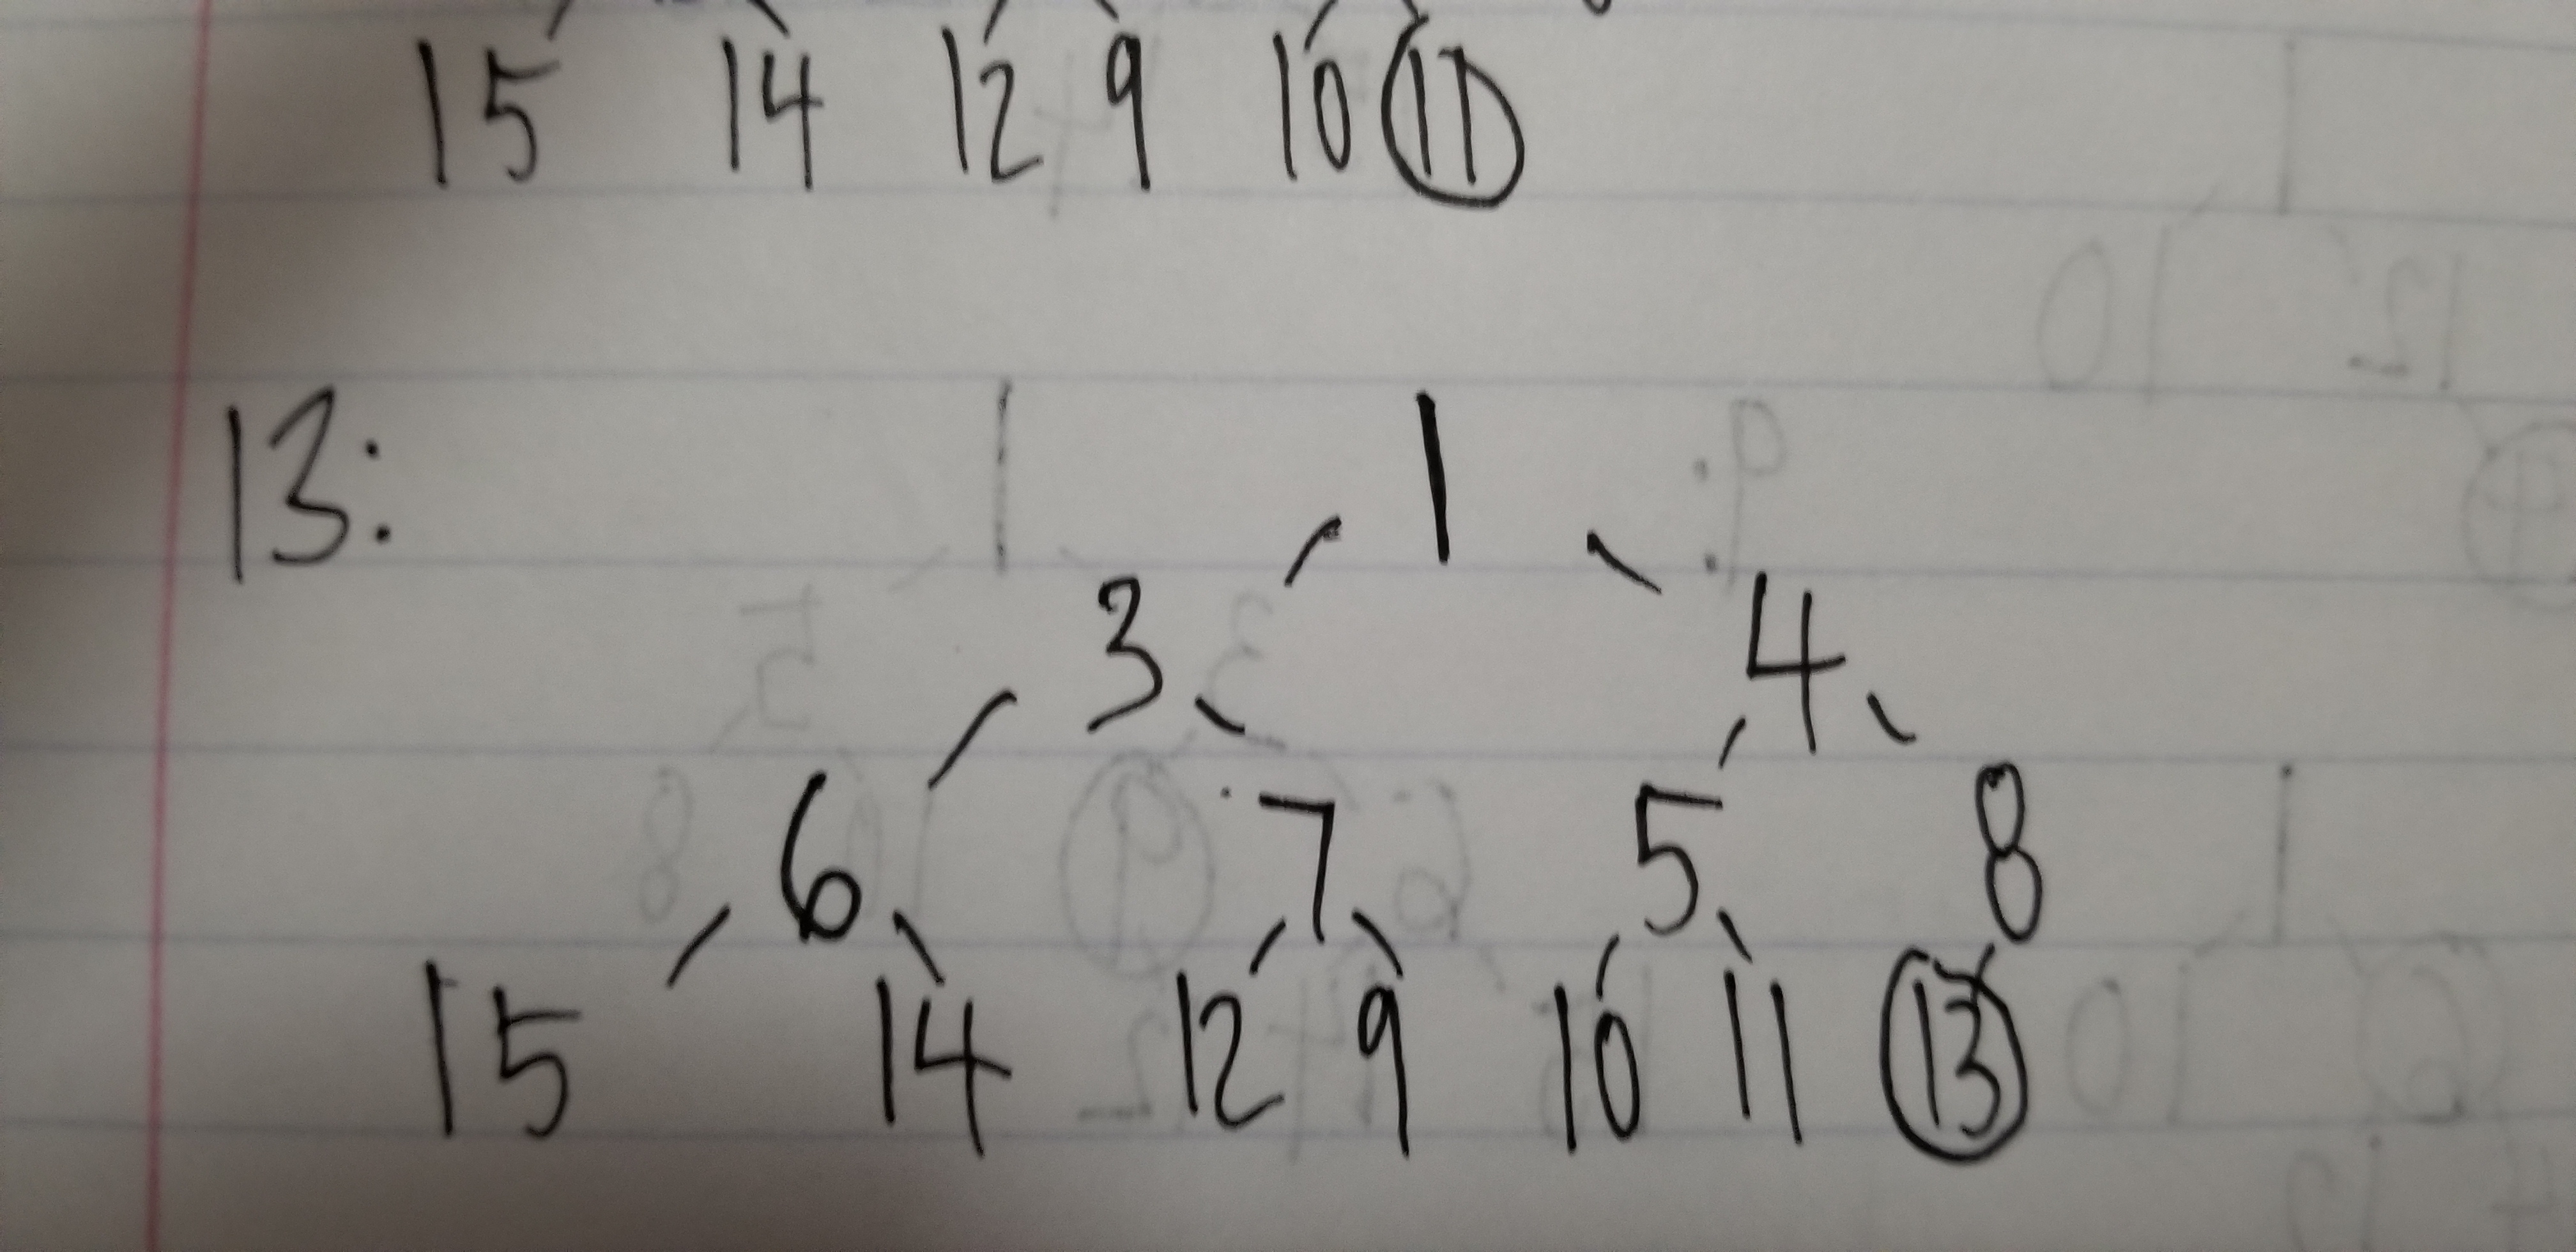 15 14 12 9 10 11
13: 1
3 4
6 7 5 8
15 14 12 9 10 11 13